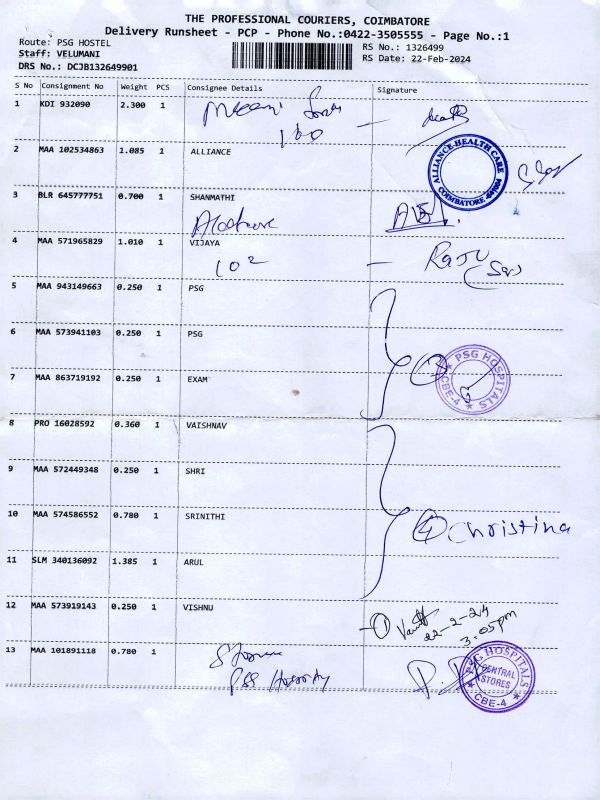 THE PROFESSIONAL COURIERS, COIMBATORE
Delivery Runsheet - PCP - Phone No.:0422-3505555 - Page No.:1
Route: PSG HOSTEL
RS No.: 1326499
Staff: VELUMANI
RS Date: 22-Feb-2024
DRS No.: DCJB132649901
S No Consignment No Weight PCS Consignee Details Signature
1 KDI 932090 2.300 1
100
2 MAA 102534863 1.085 1 ALLIANCE
ALLIANCE HEALTH CARE
COIMBATORE
3 BLR 645777751 0.700 1 SHANMATHI
4 MAA 571965829 1.010 1 VIJAYA
102 - RAJU
5 MAA 943149663 0.250 1 PSG
6 MAA 573941103 0.250 1 PSG
7 MAA 863719192 0.250 1 EXAM
PSG HOSPITALS
CBE-4
8 PRO 16028592 0.360 1 VAISHNAV
9 MAA 572449348 0.250 1 SHRI
10 MAA 574586552 0.780 1 SRINITHI
4 Christina
11 SLM 340136092 1.385 1 ARUL
12 MAA 573919143 0.250 1 VISHNU
1 22-2-24
3:05pm
13 MAA 101891118 0.780 1
PSG HOSPITALS
CENTRAL
STORES
CBE-4